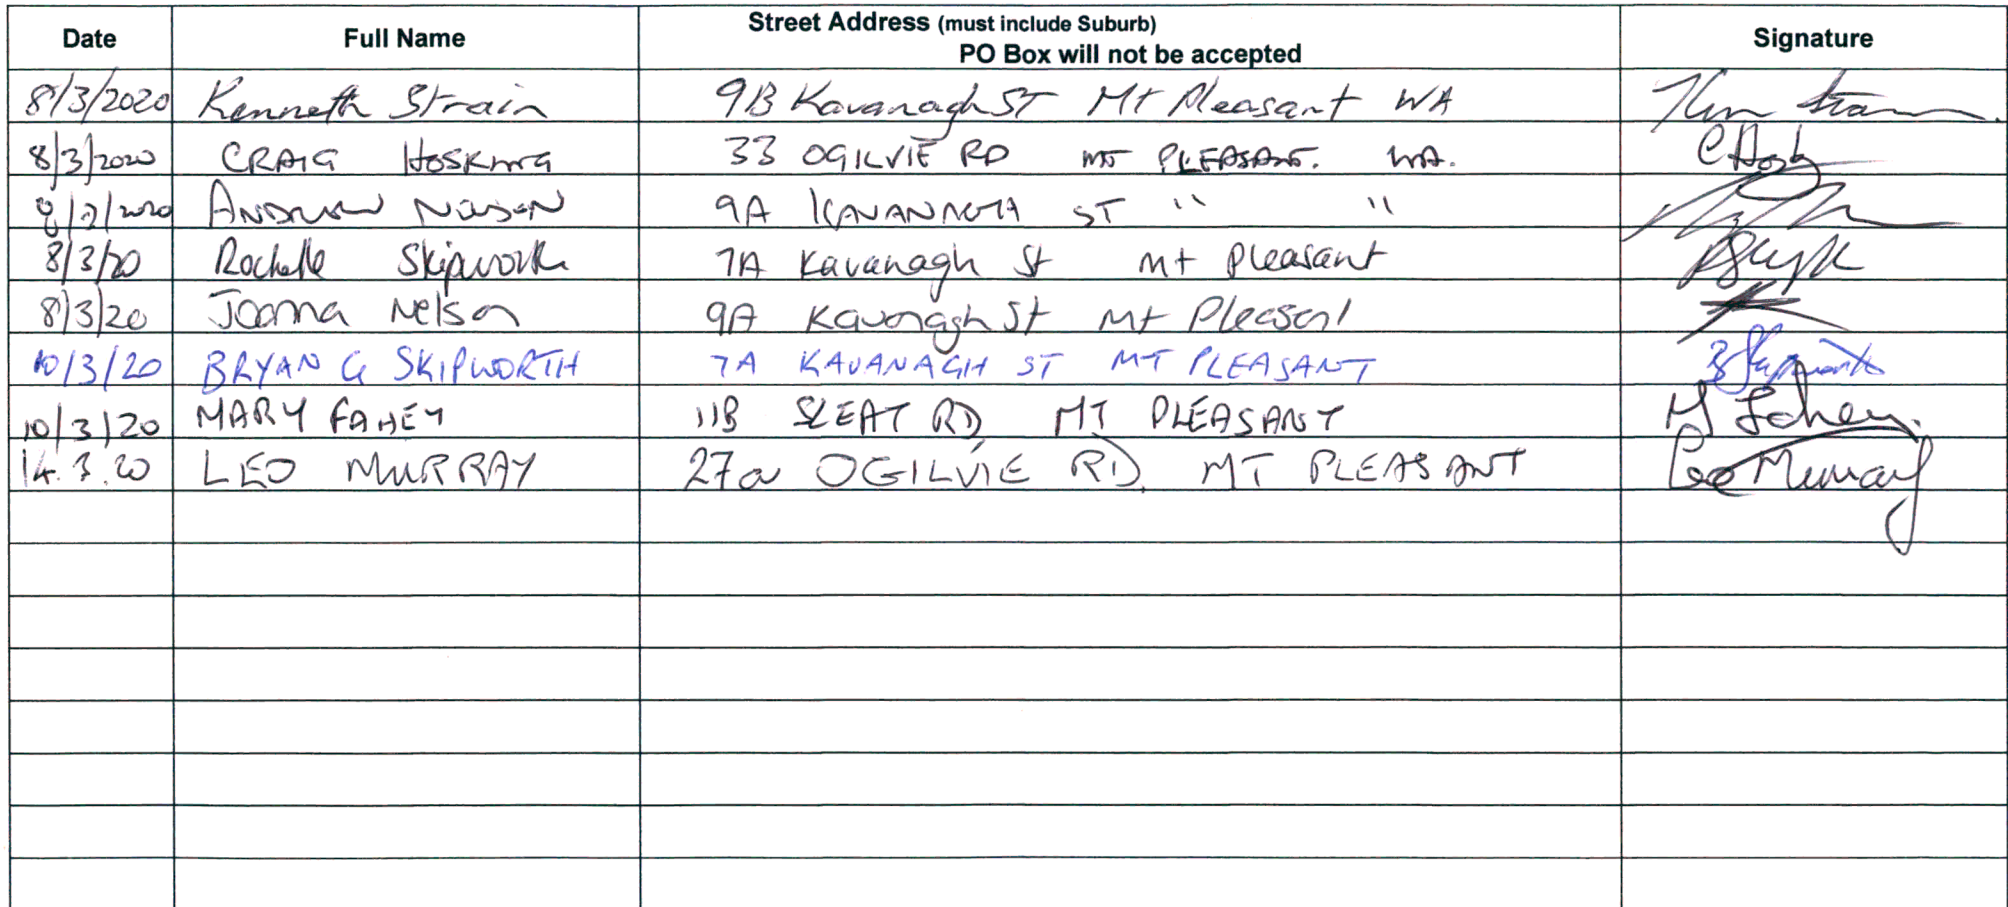 Date Full Name Street Address (must include Suburb) PO Box will not be accepted Signature
8/3/2020 Kenneth Strain 9B Kavanagh ST Mt Pleasant WA Ken Strain
8/3/2020 CRAIG HOSKING 33 OGILVIE RD MT PLEASANT. WA.
8/3/2020 ANDREW NELSON 9A KAVANAGH ST " "
8/3/20 Rochelle Skipworth 7A Kavanagh St Mt Pleasant
8/3/20 Joanna Nelson 9A Kavanagh St Mt Pleasant
10/3/20 BRYAN G SKIPWORTH 7A KAVANAGH ST MT PLEASANT B Skipworth
10/3/20 MARY FAHEY 11B SLEAT RD MT PLEASANT M Fahey.
14.3.20 LEO MURRAY 27a OGILVIE RD MT PLEASANT Leo Murray